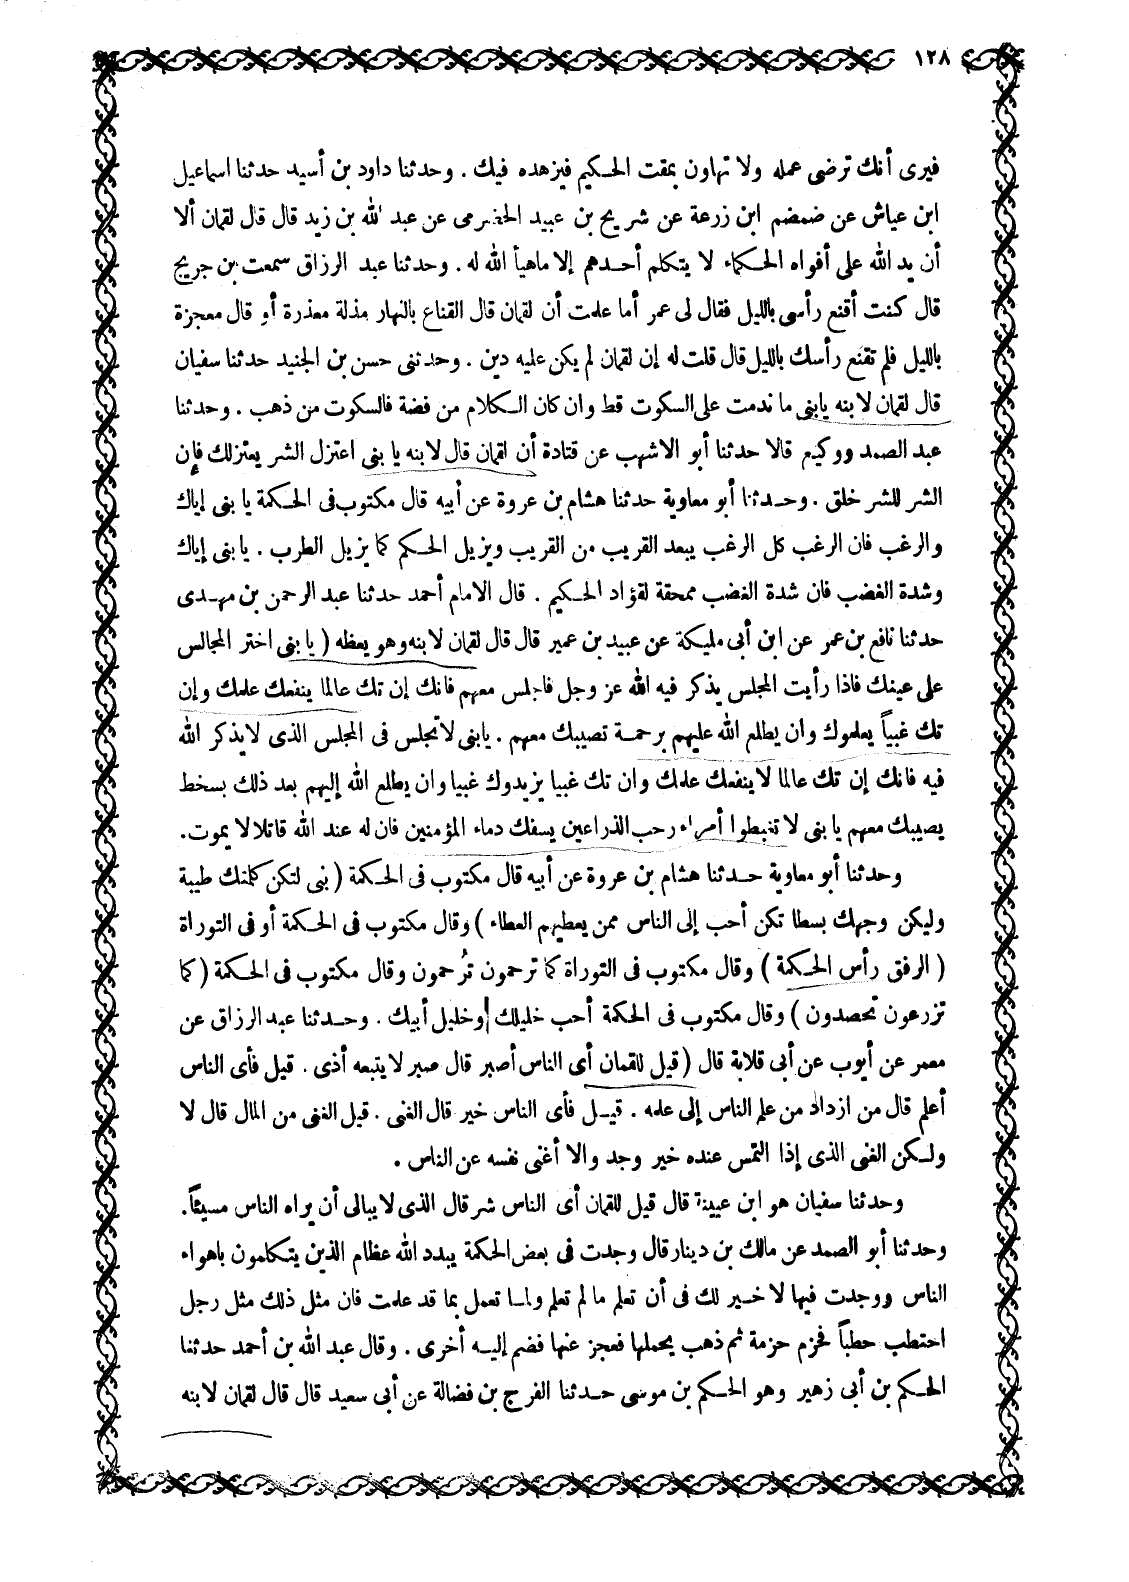 ١٢٨
فيرى أنك ترضى عمله ولا تهاون بمقت الحكيم فيزهده فيك . وحدثنا داود بن أسيد حدثنا اسماعيل
ابن عياش عن ضمضم ابن زرعة عن شريح بن عبيد الحضرمى عن عبد الله بن زيد قال قال لقمان ألا
أن يد الله على أفواه الحكماء لا يتكلم أحدهم إلا ماهيأ الله له . وحدثنا عبد الرزاق سمعت بن جريج
قال كنت أقنع رأسى بالليل فقال لى عمر أما علمت أن لقمان قال القناع بالنهار مذلة معذرة أو قال معجزة
بالليل فلم تقنع رأسك بالليل قال قلت له إن لقمان لم يكن عليه دين . وحدثنى حسن بن الجنيد حدثنا سفيان
قال لقمان لابنه يابنى ما ندمت على السكوت قط وان كان الكلام من فضة فالسكوت من ذهب . وحدثنا
عبد الصمد ووكيع قالا حدثنا أبو الاشهب عن قتادة أن لقمان قال لابنه يا بنى اعتزل الشر يعتزلك فإن
الشر للشر خلق . وحدثنا أبو معاوية حدثنا هشام بن عروة عن أبيه قال مكتوب فى الحكمة يا بنى إياك
والرغب فان الرغب كل الرغب يبعد القريب من القريب ويزيل الحكم كما يزيل الطرب . يا بنى إياك
وشدة الغضب فان شدة الغضب ممحقة لفؤاد الحكيم . قال الامام أحمد حدثنا عبد الرحمن بن مهدى
حدثنا نافع بن عمر عن ابن أبى مليكة عن عبيد بن عمير قال قال لقمان لابنه وهو يعظه ( يا بنى اختر المجالس
على عينك فاذا رأيت المجلس يذكر فيه الله عز وجل فاجلس معهم فانك إن تك عالما ينفعك علمك وإن
تك غبياً يعلموك وان يطلع الله عليهم برحمة تصيبك معهم . يابنى لا تجلس فى المجلس الذى لايذكر الله
فيه فانك إن تك عالما لا ينفعك علمك وان تك غبيا يزيدوك غبيا وان يطلع الله إليهم بعد ذلك بسخط
يصيبك معهم يا بنى لا تغبطوا أمراء رحب الذراعين يسفك دماء المؤمنين فان له عند الله قاتلا لا يموت.
وحدثنا أبو معاوية حدثنا هشام بن عروة عن أبيه قال مكتوب فى الحكمة ( بنى لتكن كلمتك طيبة
وليكن وجهك بسطا تكن أحب إلى الناس ممن يعطيهم العطاء ) وقال مكتوب فى الحكمة أو فى التوراة
( الرفق رأس الحكمة ) وقال مكتوب فى التوراة كما ترحمون تُرحمون وقال مكتوب فى الحكمة ( كما
تزرعون تحصدون ) وقال مكتوب فى الحكمة أحب خليلك وخليل أبيك . وحدثنا عبد الرزاق عن
معمر عن أيوب عن أبى قلابة قال ( قيل للقمان أى الناس أصبر قال صبر لا يتبعه أذى . قيل فأى الناس
أعلم قال من ازداد من علم الناس إلى علمه . قيل فأى الناس خير قال الغنى . قيل الغنى من المال قال لا
ولكن الغنى الذى إذا التمس عنده خير وجد والا أغنى نفسه عن الناس .
وحدثنا سفيان هو ابن عيينة قال قيل للقمان أى الناس شر قال الذى لا يبالى أن يراه الناس مسيئاً.
وحدثنا أبو الصمد عن مالك بن دينار قال وجدت فى بعض الحكمة يبدد الله عظام الذين يتكلمون باهواء
الناس ووجدت فيها لا خير لك فى أن تعلم ما لم تعلم ولما تعمل بما قد علمت فان مثل ذلك مثل رجل
احتطب حطباً فحزم حزمة ثم ذهب يحملها فعجز عنها فضم إليه أخرى . وقال عبد الله بن أحمد حدثنا
الحكم بن أبى زهير وهو الحكم بن موسى حدثنا الفرج بن فضالة عن أبى سعيد قال قال لقمان لابنه